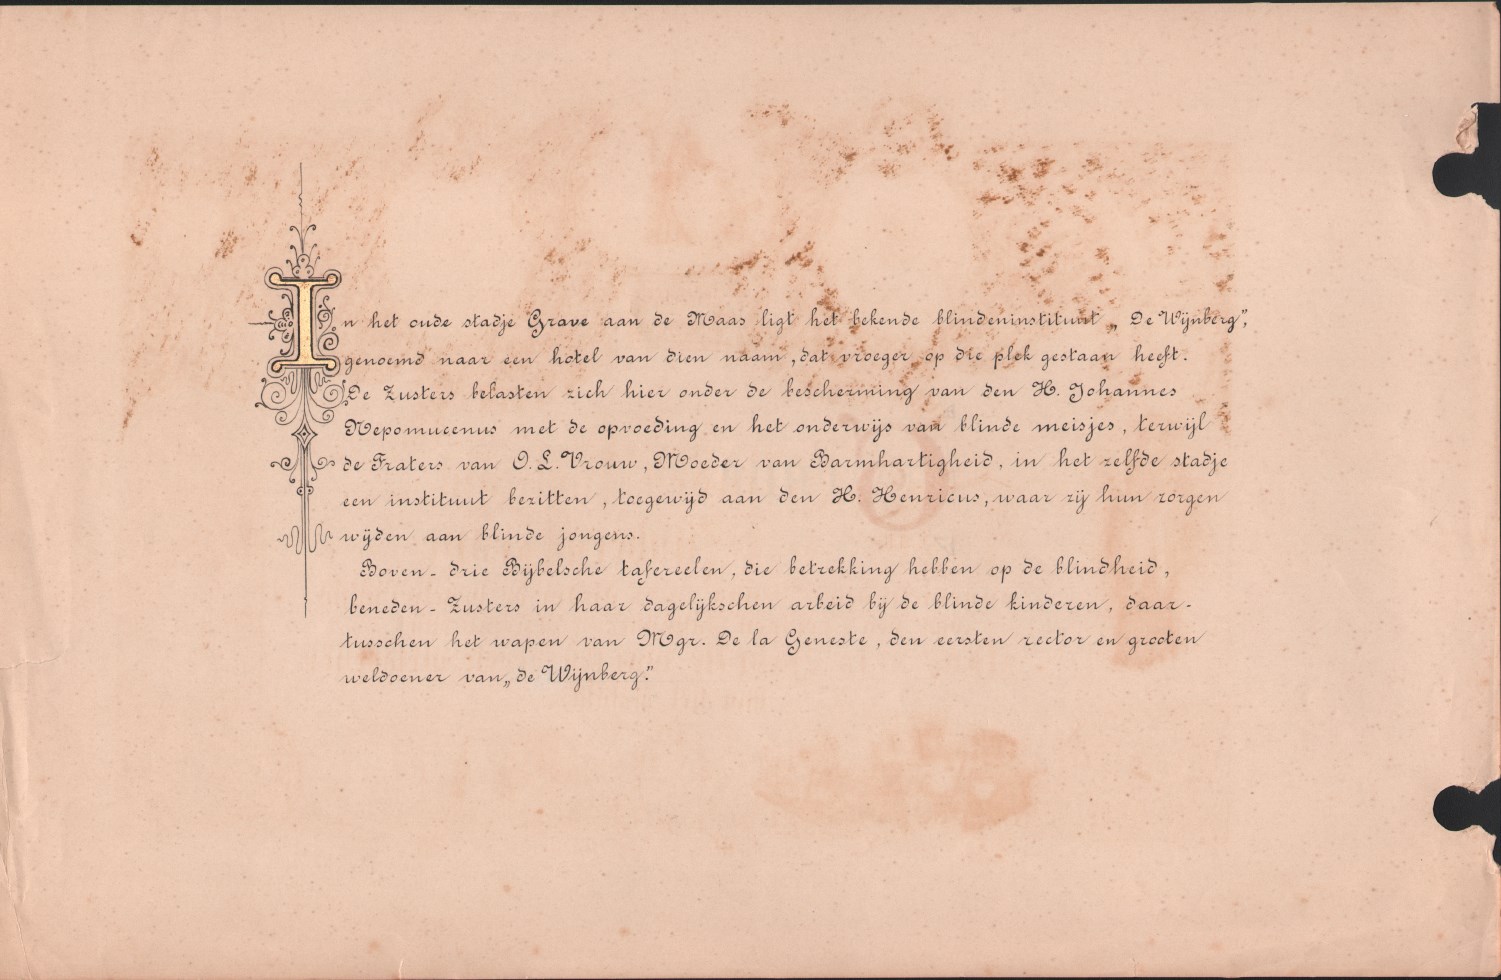 In het oude stadje Grave aan de Maas ligt het bekende blindeninstituut „De Wijnberg”,
genoemd naar een hotel van dien naam, dat vroeger op die plek gestaan heeft.
De Zusters belasten zich hier onder de bescherming van den H. Johannes
Nepomucenus met de opvoeding en het onderwijs van blinde meisjes, terwijl
de Fraters van O. L. Vrouw, Moeder van Barmhartigheid, in het zelfde stadje
een instituut bezitten, toegewijd aan den H. Henricus, waar zij hun zorgen
wijden aan blinde jongens.
Boven - drie Bijbelsche tafereelen, die betrekking hebben op de blindheid,
beneden - Zusters in haar dagelijkschen arbeid bij de blinde kinderen, daar-
tusschen het wapen van Mgr. De la Geneste, den eersten rector en grooten
weldoener van „de Wijnberg.”